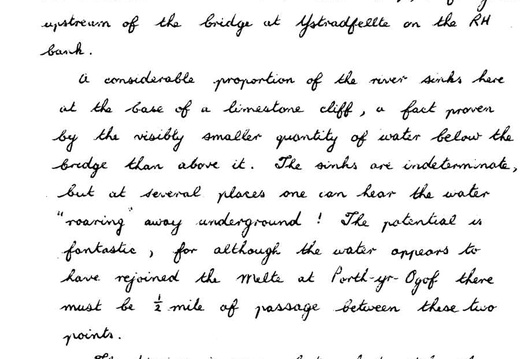 upstream of the bridge at Ystradfellte on the RH
bank.
A considerable proportion of the river sinks here
at the base of a limestone cliff, a fact proven
by the visibly smaller quantity of water below the
bridge than above it. The sinks are indeterminate,
but at several places one can hear the water
"roaring" away underground! The potential is
fantastic, for although the water appears to
have rejoined the Mellte at Porth-yr-Ogof there
must be ½ mile of passage between these two
points.